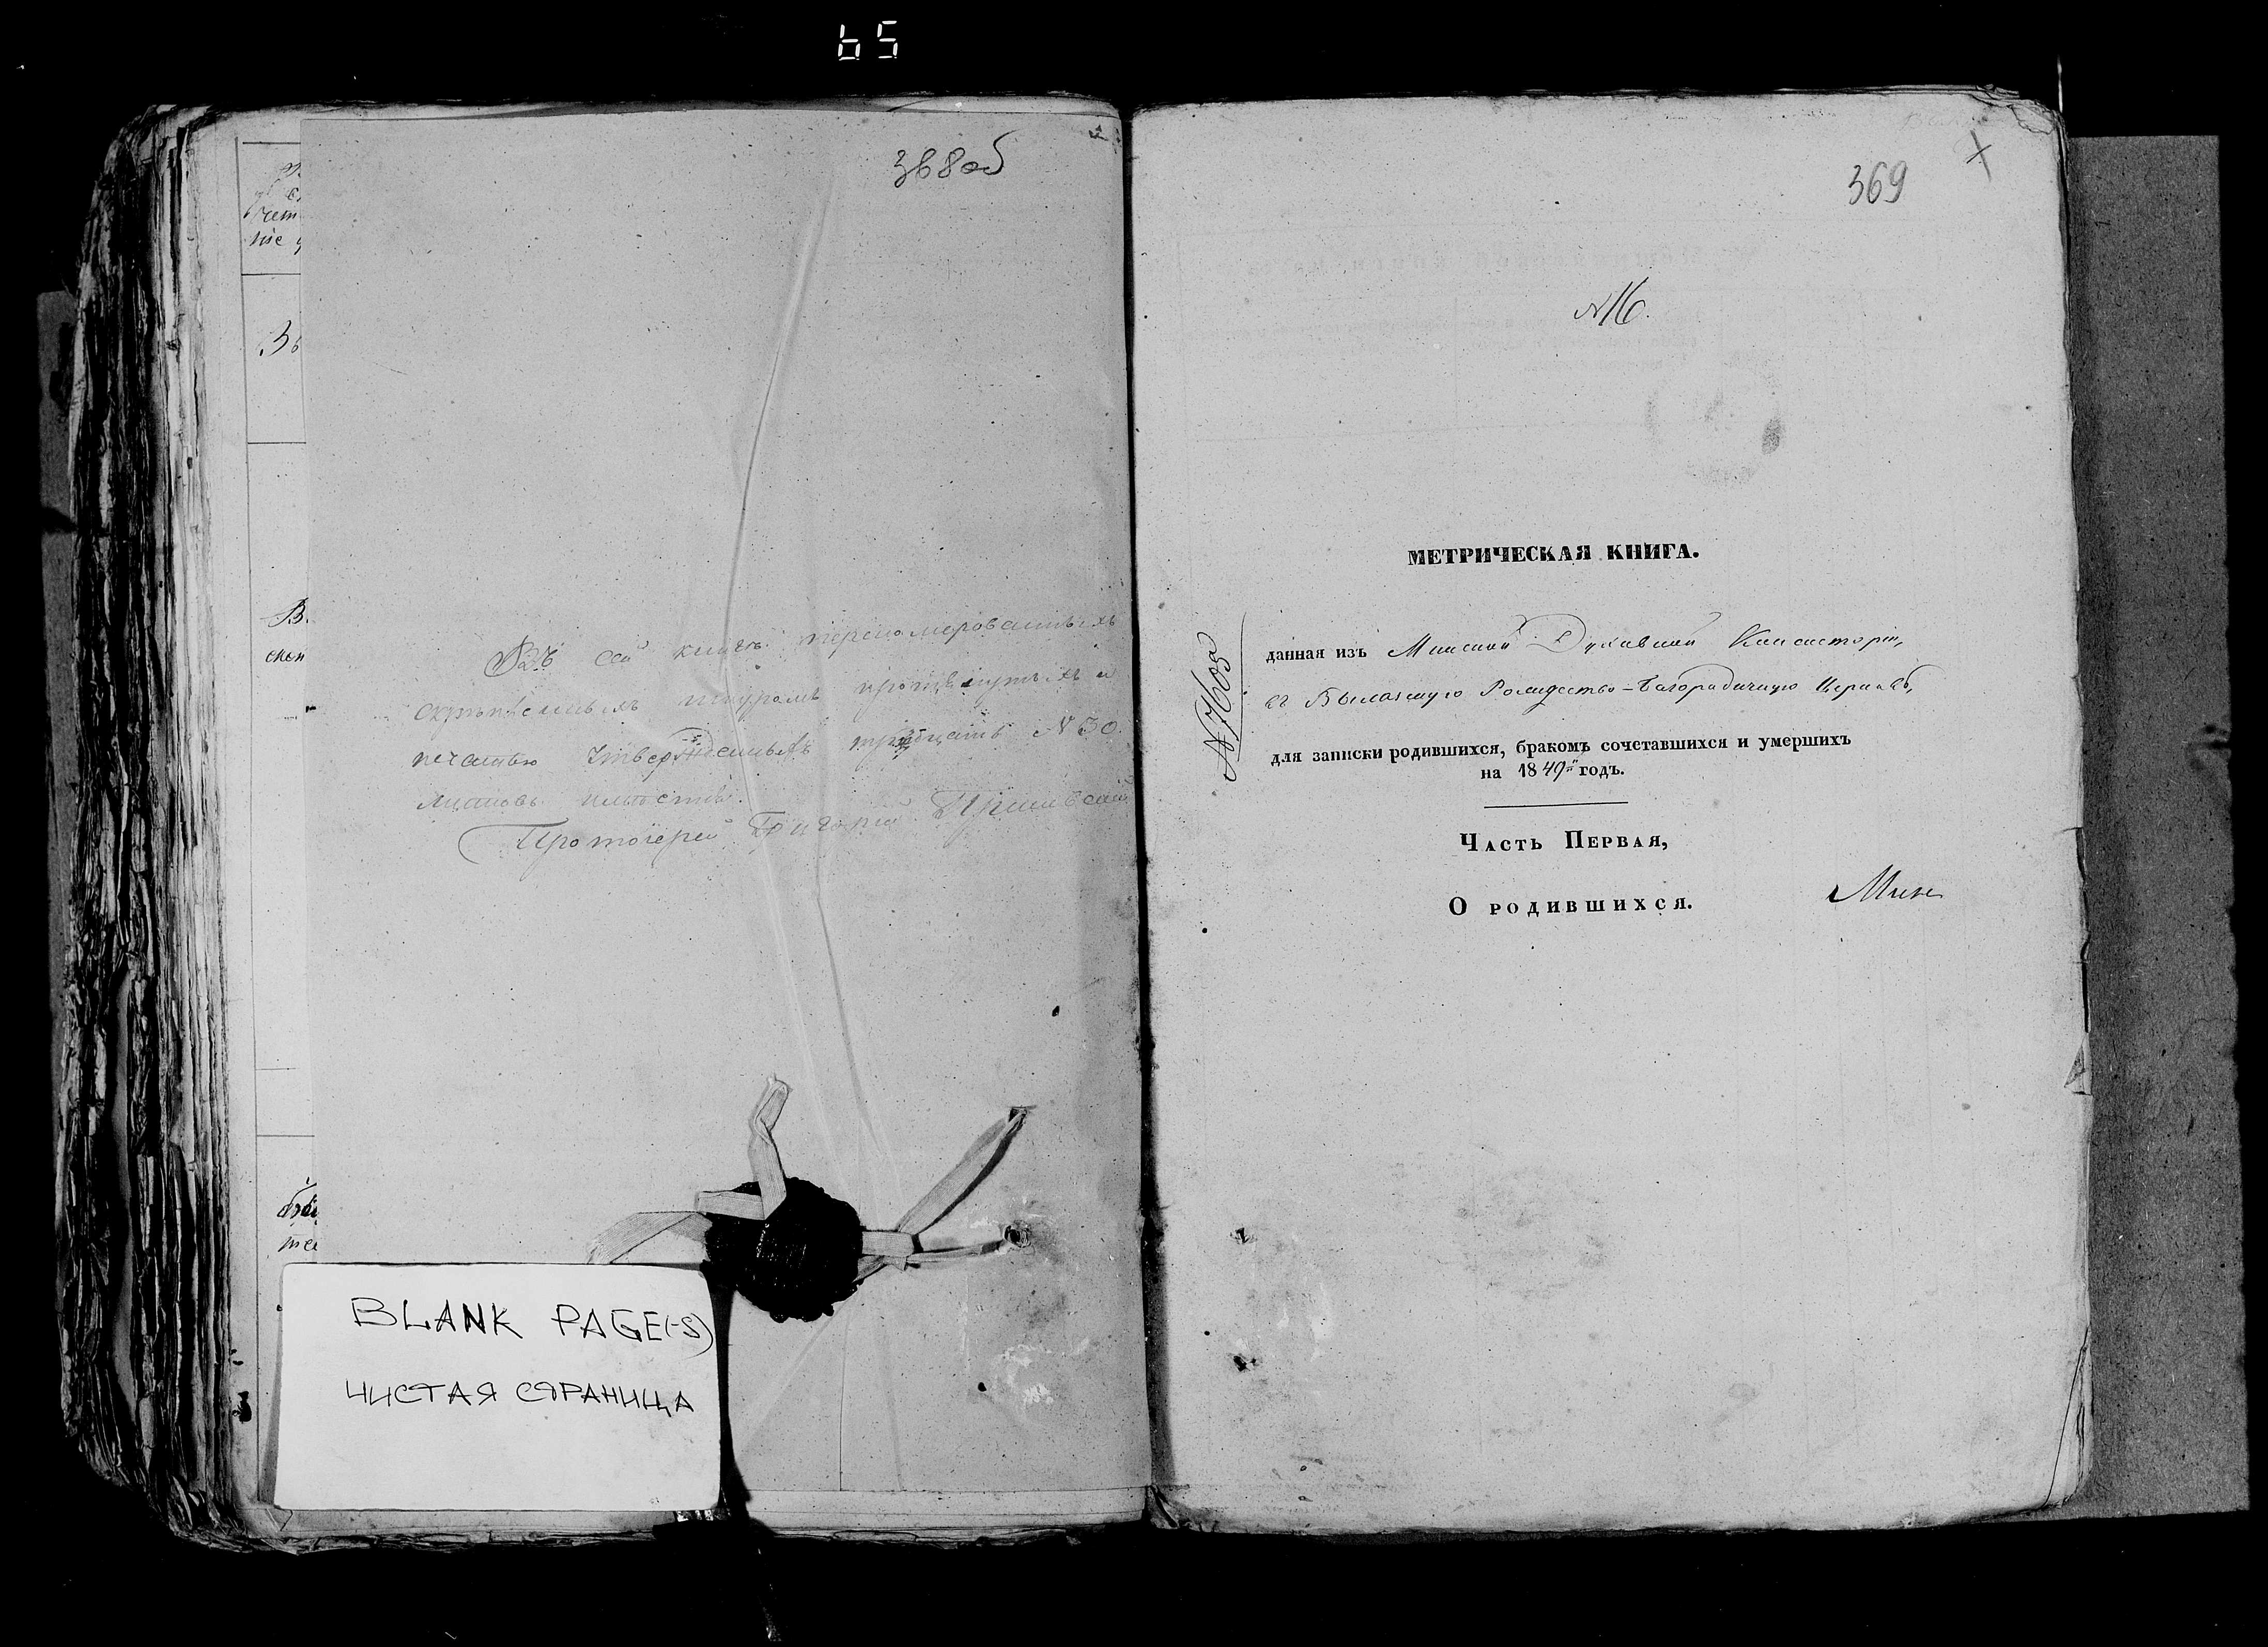 65
368об
Въ сей книгѣ перенумерованныхъ
скрѣпленныхъ шнуромъ протянутыхъ и
печатью утвержденныхъ тридцать N 30
листовъ
Протоіерей Григорій
BLANK PAGE(-S)
ЧИСТАЯ СТРАНИЦА
369
N16.
МЕТРИЧЕСКАЯ КНИГА.
данная изъ Минской Духовной Консисторіи,
въ Рождество-Богородичную Церковь,
для записки родившихся, бракомъ сочетавшихся и умершихъ
на 1849й годъ.
Часть Первая,
О родившихся.
Мин
N7605